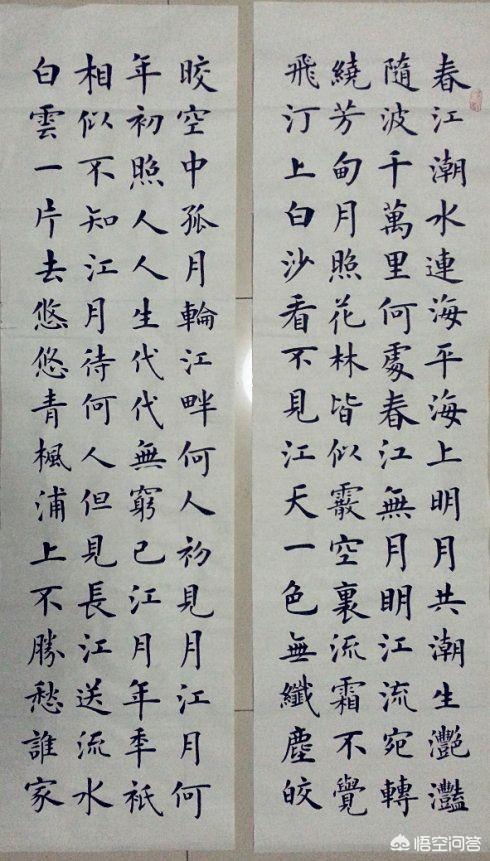 春江潮水連海平海上明月共潮生灧灩
隨波千萬里何處春江無月明江流宛轉
繞芳甸月照花林皆似霰空裏流霜不覺
飛汀上白沙看不見江天一色無纖塵皎
皎空中孤月輪江畔何人初見月江月何
年初照人人生代代無窮已江月年年衹
相似不知江月待何人但見長江送流水
白雲一片去悠悠青楓浦上不勝愁誰家
悟空问答